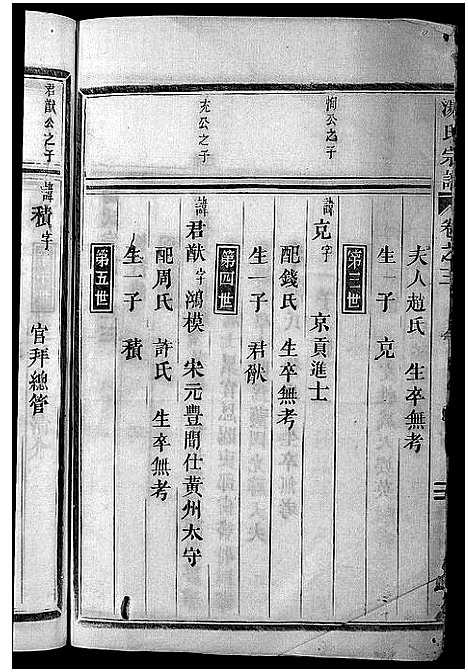 湯氏宗譜 卷之三
夫人趙氏 生卒無考
生子 克
第三世
恂公之子
諱克字 京貢進士
配錢氏 生卒無考
生一子 君猷
第四世
克公之子
諱君猷字鴻模 宋元豐間仕黃州太守
配周氏 許氏 生卒無考
生一子 積
第五世
君猷公之子
諱積字 官拜總管